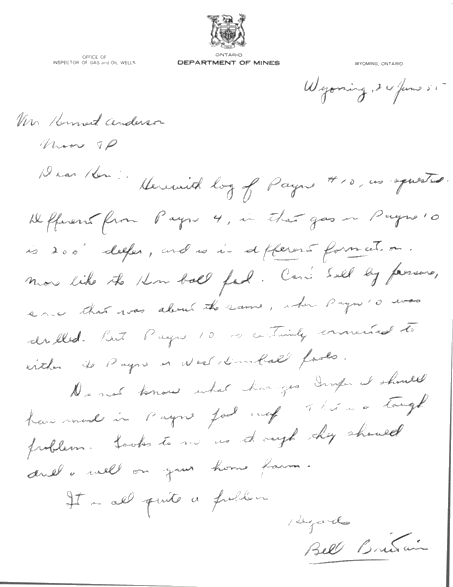 ONTARIO
OFFICE OF
INSPECTOR OF GAS and OIL WELLS
DEPARTMENT OF MINES
WYOMING, ONTARIO
Wyoming, 24 June 55
Mr Kenneth Anderson
Moore TP
Dear Ken:
Herewith log of Payne #10, as requested.
Different from Payne 4, in that gas in Payne 10
is 200' deeper, and is in different formation.
More like the Kimball pool. Can't tell by pressure,
since that was about the same, when Payne 10 was
drilled. But Payne 10 is certainly connected to
either the Payne or West Kimball pools.
Do not know what changes should
have made in Payne pool map. This is a tough
problem. Looks to me as though they should
drill a well on your home farm.
It is all quite a problem
Regards
Bill